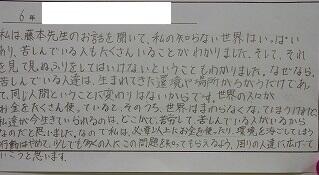 6年
私は、藤本先生のお話を聞いて、私の知らない世界はいっぱい
あり、苦しんでいる人もたくさんいることがわかりました。そして、それ
を見て見ぬふりをしてはいけないということもわかりました。なぜなら、
苦しんでいる人達は、生まれてきた環境や場所がちがうだけであっ
て、同じ人間ということに変わりはないからです。世界の人々が
お金をたくさん使っていると、そのうち、世界はまわらなくなっていきますが、
私達が今生きていられるのは、どこかで、苦労して、苦しんでいる人がいるから
なのだと思いました。なので私は、必要以上にお金を使ったり、環境を汚してしまう
行動はやめて、少しでも多くの人にこの問題を知ってもらえるよう、周りの人達に広げて
いこうと思います。